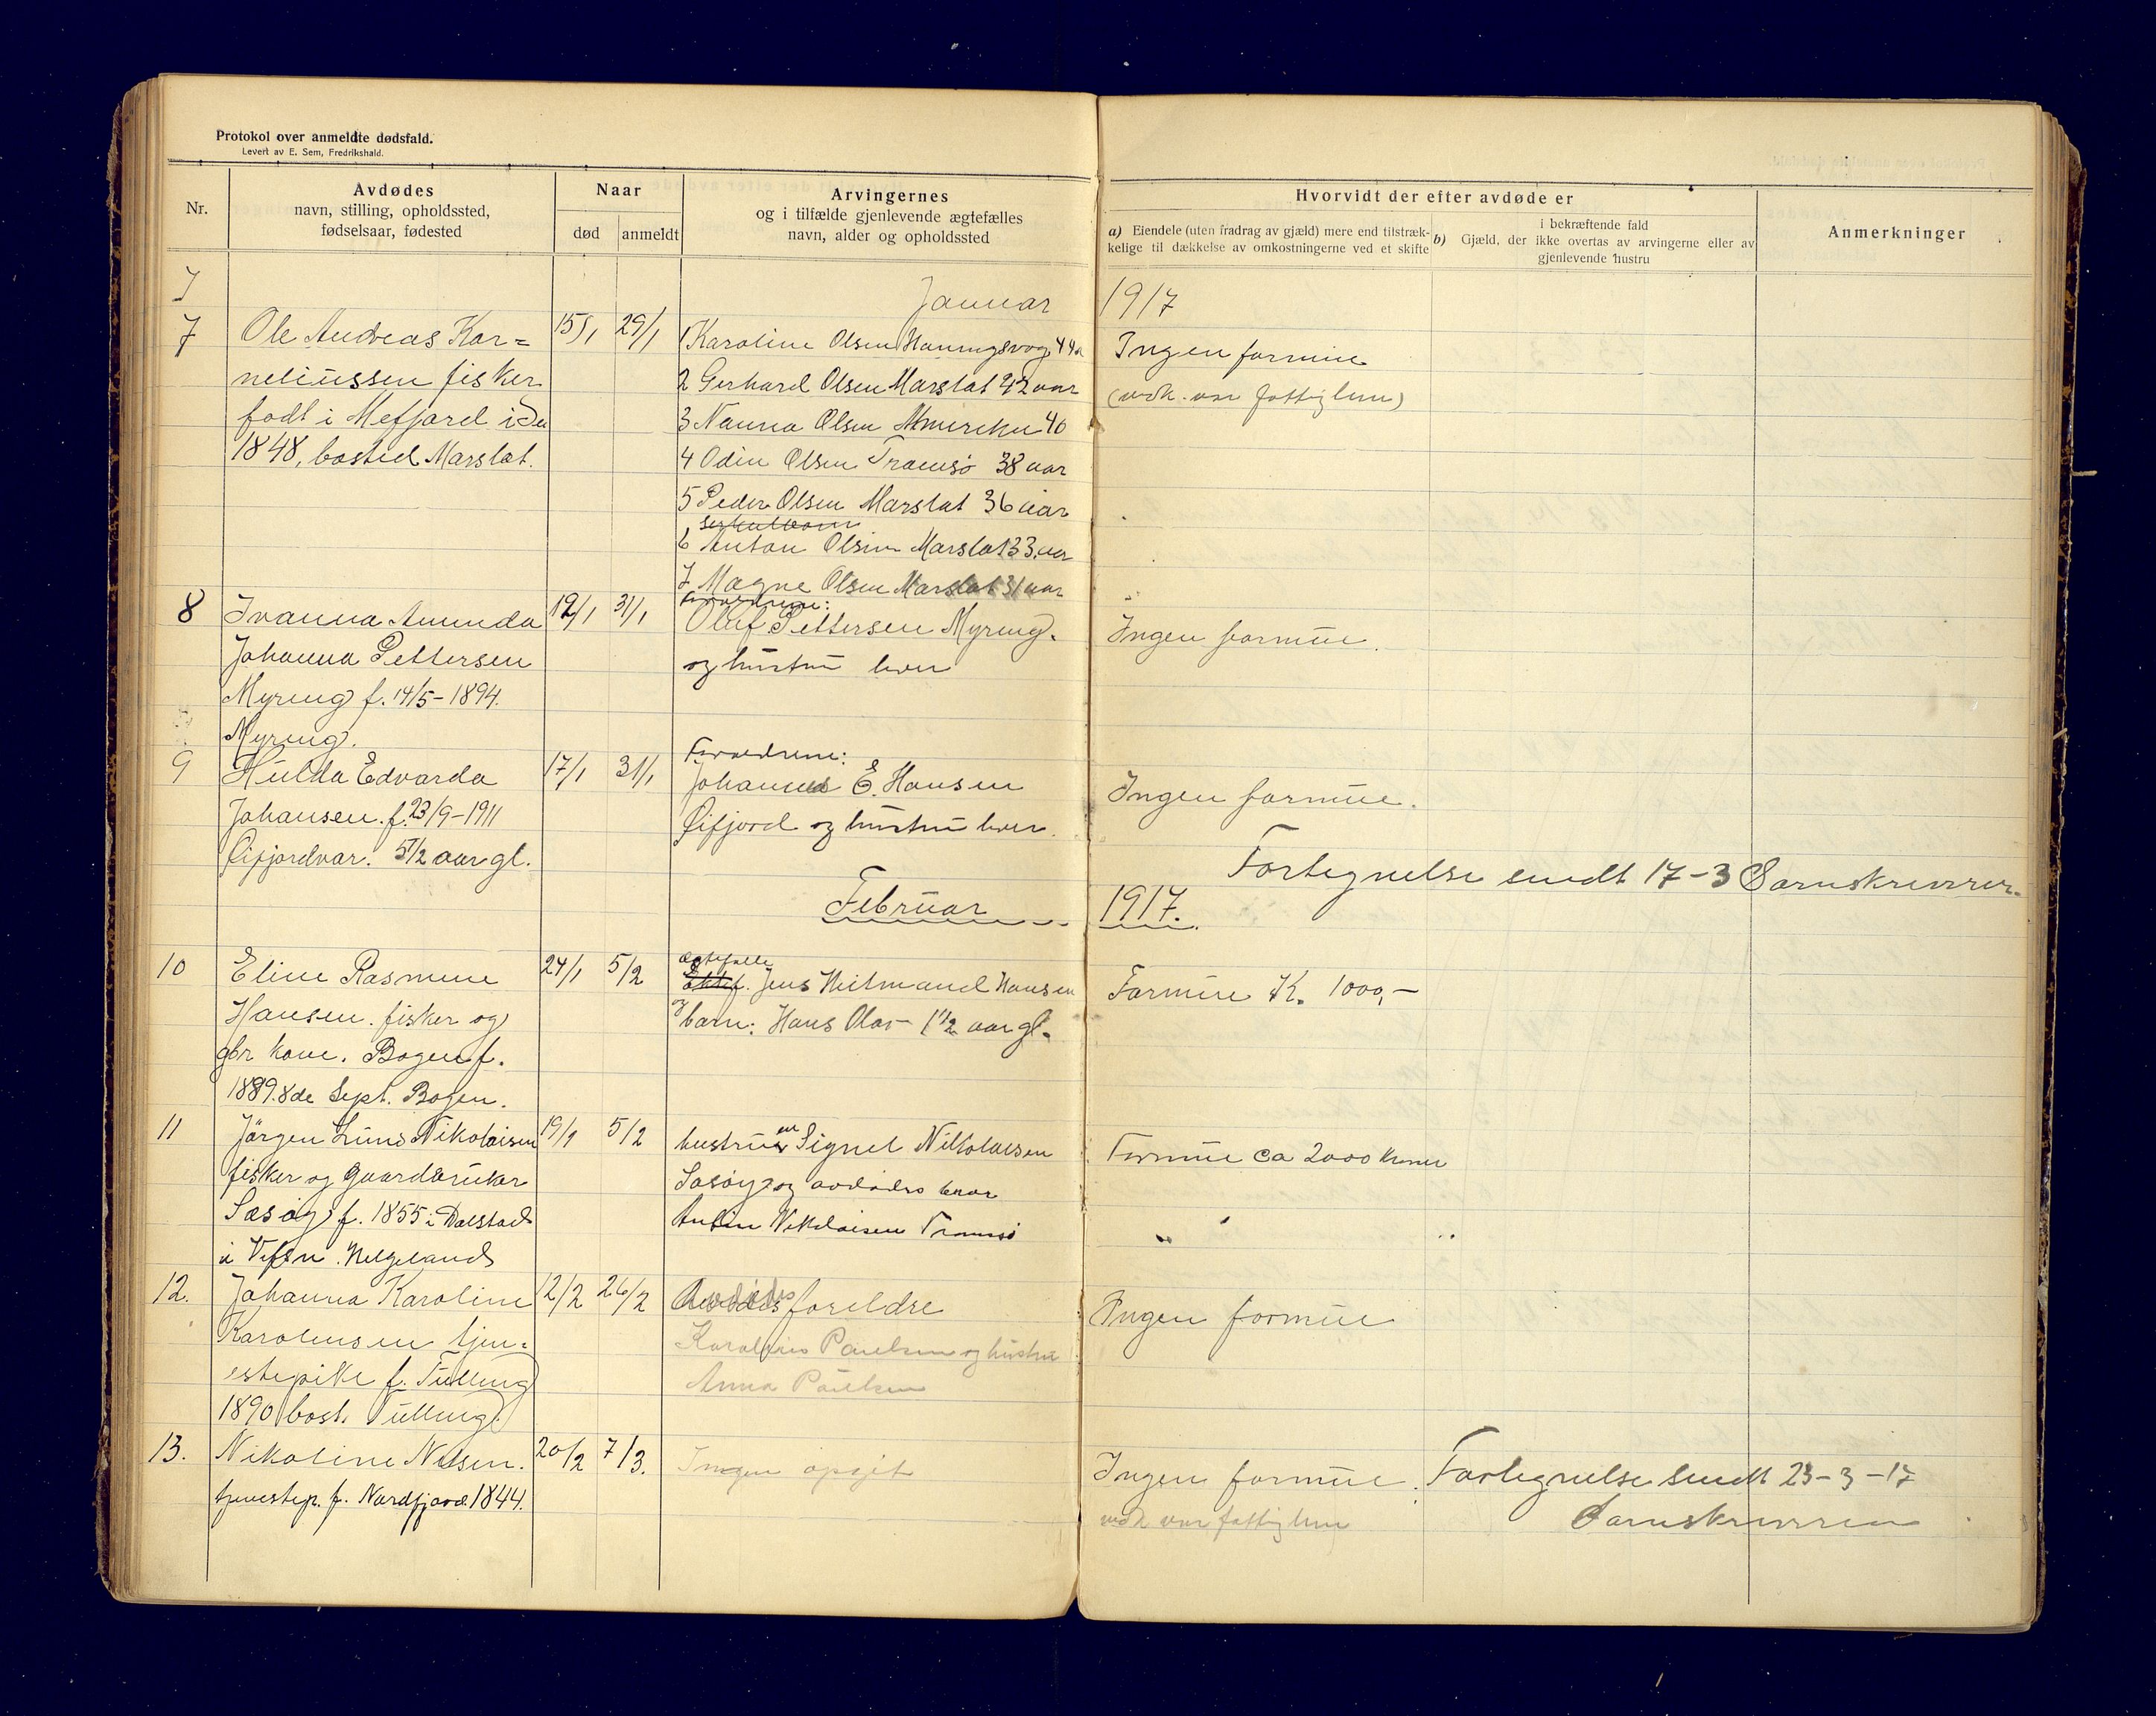 Protokol over anmeldte dødsfald.
Levert av E. Sem, Fredrikshald.
Nr.
Avdødes
navn, stilling, opholdssted,
fødselsaar, fødested
Naar
død
anmeldt
Arvingernes
og i tilfælde gjenlevende ægtefælles
navn, alder og opholdssted
Hvorvidt der efter avdøde er
a) Eiendele (uten fradrag av gjæld) mere end tilstræk-
kelige til dækkelse av omkostningerne ved et skifte
b) Gjæld, der
i bekræftende fald
ikke overtas av arvingerne eller av
gjenlevende hustru
Anmerkninger
Januar 1917
7
Ole Andreas Kor=
neliussen fisker
født i Mefjord
1848, bosted Marslat.
15/1
29/1
1 Karoline Olsen Honningsvog 44
2 Gerhard Olsen Marslat 42 aar
3 Nanna Olsen Amerika 40
4 Odin Olsen Tromsø 38 aar
5 Peder Olsen Marslat 36 aar
6 Anton Olsen Marslat 33 aar
7 Magne Olsen Marslat 31 aar
Ingen formue
(avdk. var fattiglem)
8
Ivanna Amunda
Johanna Pettersen
Myreng f. 14/5-1894.
Myreng.
12/1
31/1
Forældrene:
Oluf Pettersen Myreng.
og hustru lever
Ingen formue.
9
Hulda Edvarda
Johansen. f. 23/9-1911
Øifjordvær. 5 1/2 aar gl.
17/1
31/1
Forældrene:
Johannes E. Hansen
Øifjord og hustru lever.
Ingen formue.
Fortegnelse sendt 17-3 Sorenskriveren
Februar 1917.
10
Eline Rasmine
Hansen. fisker og
gbr kone. Bogen f.
1889. 8de Sept. Bogen.
24/1
5/2
ægtefælle
Jens Hitmand Hansen
og barn: Hans Olav 1 1/2 aar gl.
Formue K. 1000,-
11
Jørgen Nikolaisen
fisker og gaardbruker
f. 1855 i Dolstad
i Vefsn. Helgeland
19/1
5/2
hustruen Signel Nikolaisen
og avdødes bror
Nikolaisen Tromsø
Formue ca 2000 kroner
12.
Johanna Karoline
Karolinsen tjen=
estepike f. Tulleng
1890 bost. Tulleng.
12/2
26/2
Avdødes foreldre
Karolius Paulsen og hustru
Anna Paulsen
Ingen formue
13.
Nikoline Nilsen.
tjenestep. f. Nordfjord. 1844.
20/2
7/3.
Ingen opgit
Ingen formue.
avdk var fattiglem
Fortegnelse sendt 23-3-17
Sorenskriveren